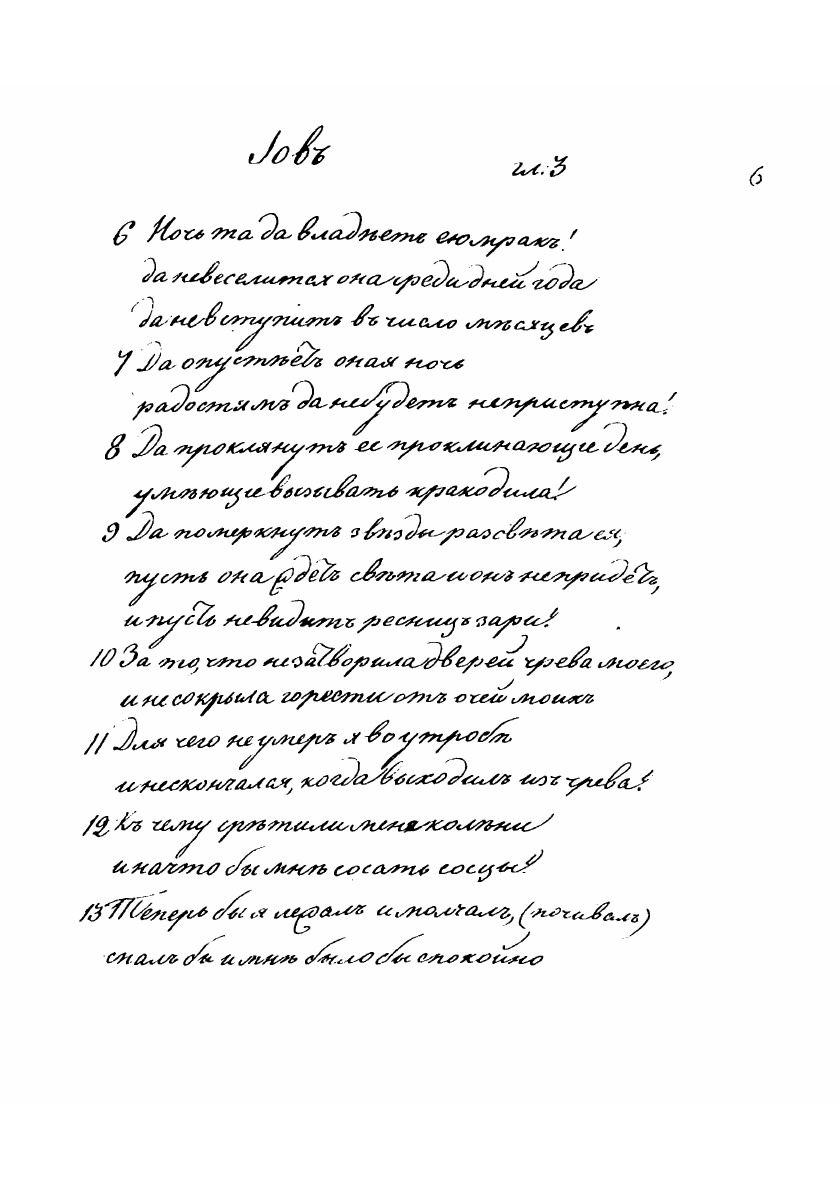 Іовъ гл: 3 6
6 Ночь та да владѣетъ ею мракъ!
да невеселится она среди дней года
да невступитъ въ число мѣсяцевъ
7 Да опустѣетъ оная ночь
радостямъ да небудетъ неприступна!
8 Да проклянутъ ее проклинающіе день,
умѣющіе вызывать кракодила!
9 Да померкнутъ звѣзды разсвѣта ея,
пусть она ждетъ свѣта и онъ непридетъ,
и пусть невидитъ ресницъ зари!
10 За то, что незатворила дверей чрева моего,
и не сокрыла горести отъ очей моихъ
11 Для чего не умеръ я во утробѣ
и нескончался, когда выходилъ изъ чрева!
12 Къ чему срѣтили меня колѣни
и начто бы мнѣ сосать сосцы!
13 Теперь бы я лежалъ и молчалъ, (почивалъ)
спалъ бы и мнѣ было бы спокойно